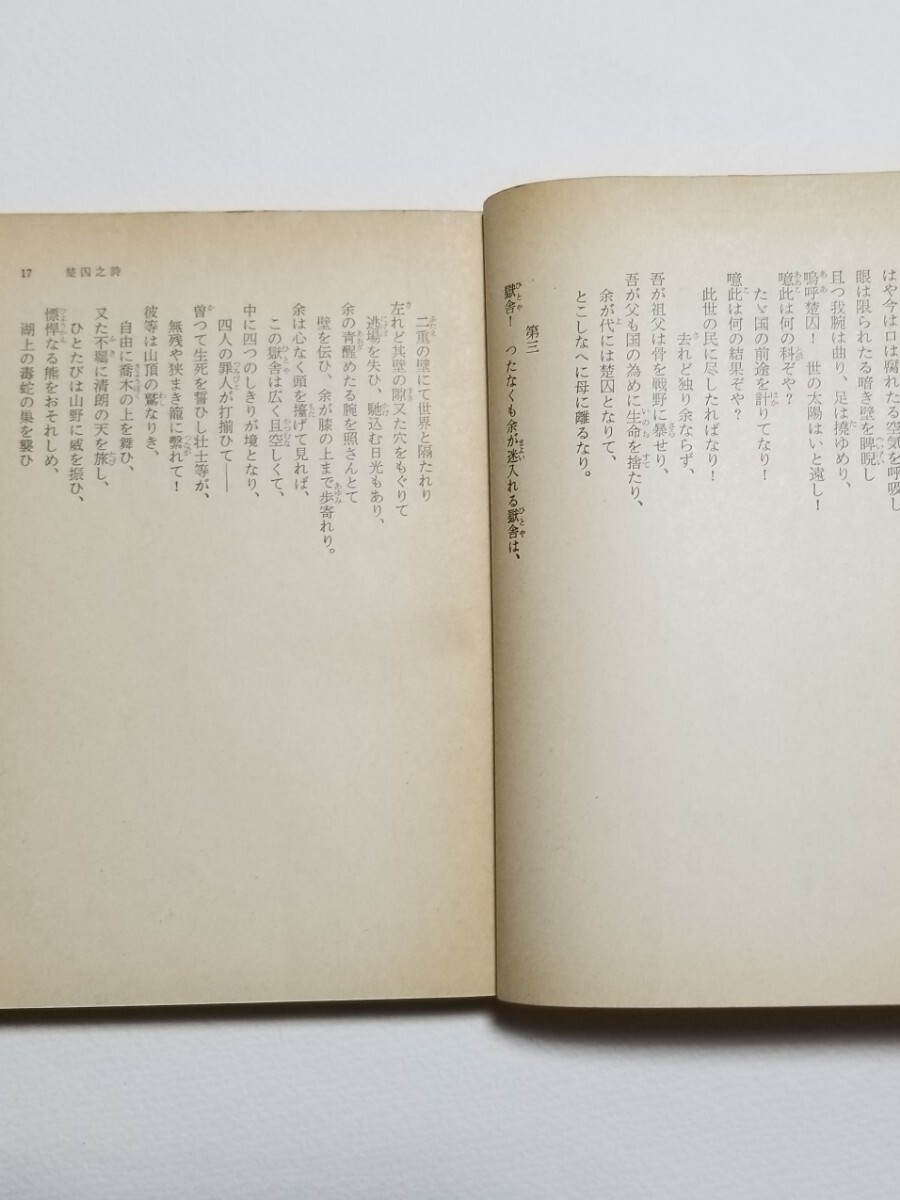 はや今は口は腐れたる空気を呼吸し
眼は限られたる暗き壁を睥睨し
且つ我腕は曲り、足は撓ゆめり、
嗚呼楚囚！　世の太陽はいと遠し！
噫此は何の科ぞや？
たゞ国の前途を計りてなり！
噫此は何の結果ぞや？
此世の民に尽したればなり！
去れど独り余ならず、
吾が祖父は骨を戦野に暴せり、
吾が父も国の為めに生命を捨たり、
余が代には楚囚となりて、
とこしなへに母に離るなり。
第三
獄舎！　つたなくも余が迷入れる獄舎は、
17　楚囚之詩
二重の壁にて世界と隔たれり
左れど其壁の隙又た穴をもぐりて
逃場を失ひ、馳込む日光もあり、
余の青醒めたる腕を照さんとて
壁を伝ひ、余が膝の上まで歩寄れり。
余は心なく頭を擡げて見れば、
この獄舎は広く且空しくて、
中に四つのしきりが境となり、
四人の罪人が打揃ひて――
曾つて生死を誓ひし壮士等が、
無残や狭まき籠に繫れて！
彼等は山頂の鷲なりき、
自由に喬木の上を舞ひ、
又た不羈に清朗の天を旅し、
ひとたびは山野に威を振ひ、
慓悍なる熊をおそれしめ、
湖上の毒蛇の巣を襲ひ